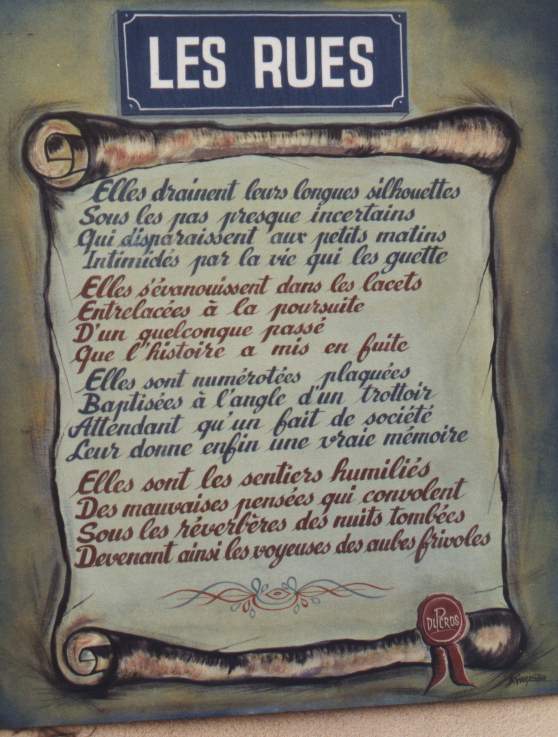 LES RUES
Elles drainent leurs longues silhouettes
Sous les pas presque incertains
Qui disparaissent aux petits matins
Intimidés par la vie qui les guette
Elles s'évanouissent dans les lacets
Entrelacées à la poursuite
D'un quelconque passé
Que l'histoire a mis en fuite
Elles sont numérotées plaquées
Baptisées à l'angle d'un trottoir
Attendant qu'un fait de société
Leur donne enfin une vraie mémoire
Elles sont les sentiers humiliés
Des mauvaises pensées qui convolent
Sous les réverbères des nuits tombées
Devenant ainsi les voyeuses des aubes frivoles